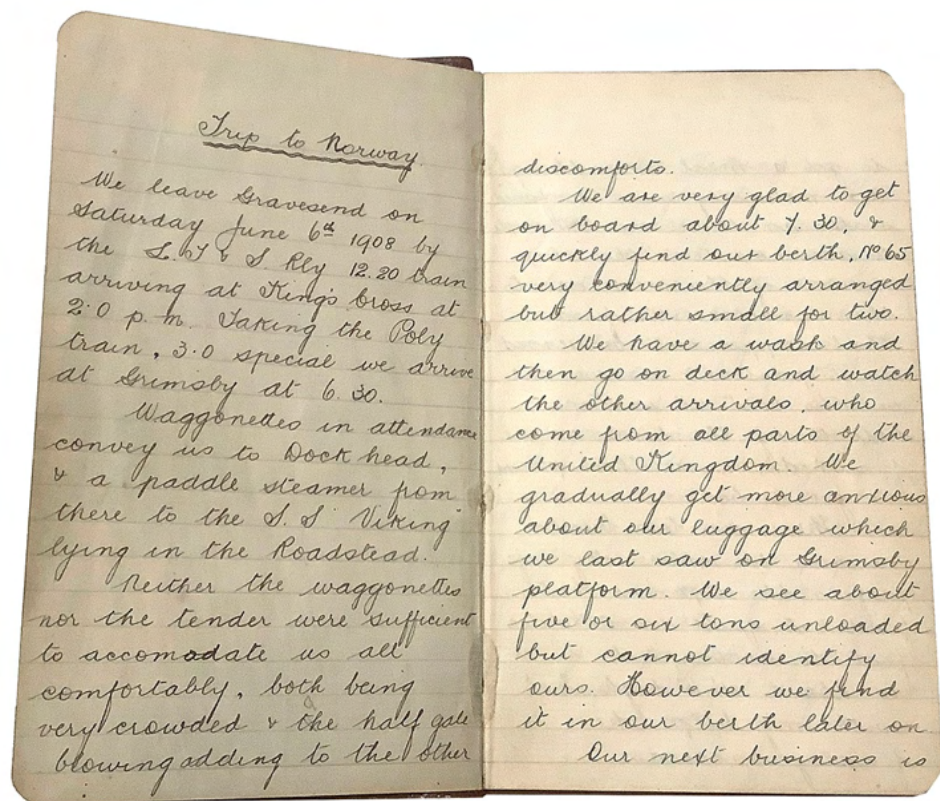 Trip to Norway.
We leave Gravesend on
Saturday June 6th 1908 by
the L.T & S. Rly 12.20 train
arriving at King's Cross at
2.0 p.m. Taking the Poly
train, 3.0 special we arrive
at Grimsby at 6.30.
Waggonettes in attendance
convey us to Dock head,
& a paddle steamer from
there to the S.S Viking
lying in the Roadstead.
Neither the waggonettes
nor the tender were sufficient
to accomodate us all
comfortably, both being
very crowded & the half gale
blowing adding to the other
discomforts.
We are very glad to get
on board about 7.30, &
quickly find our berth, No 65
very conveniently arranged
but rather small for two.
We have a wash and
then go on deck and watch
the other arrivals, who
come from all parts of the
United Kingdom. We
gradually get more anxious
about our luggage which
we last saw on Grimsby
platform. We see about
five or six tons unloaded
but cannot identify
ours. However we find
it in our berth later on
Our next business is